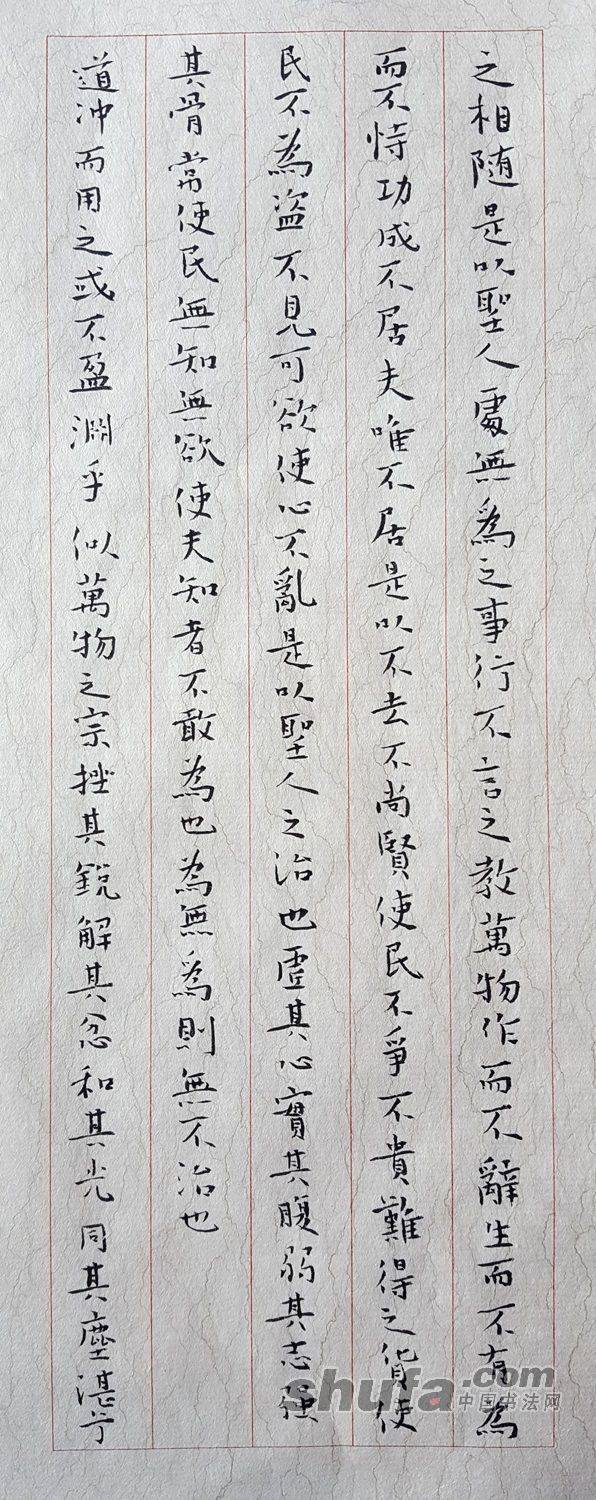 之相随是以聖人處無為之事行不言之教萬物作而不辭生而不有為
而不恃功成不居夫唯不居是以不去不尚賢使民不爭不貴難得之货使
民不為盗不見可欲使心不亂是以聖人之治也虛其心實其腹弱其志强
其骨常使民無知無欲使夫知者不敢為也為無為則無不治也
道冲而用之或不盈淵乎似萬物之宗挫其銳解其忿和其光同其塵湛乎
shufa.com
中国书法网